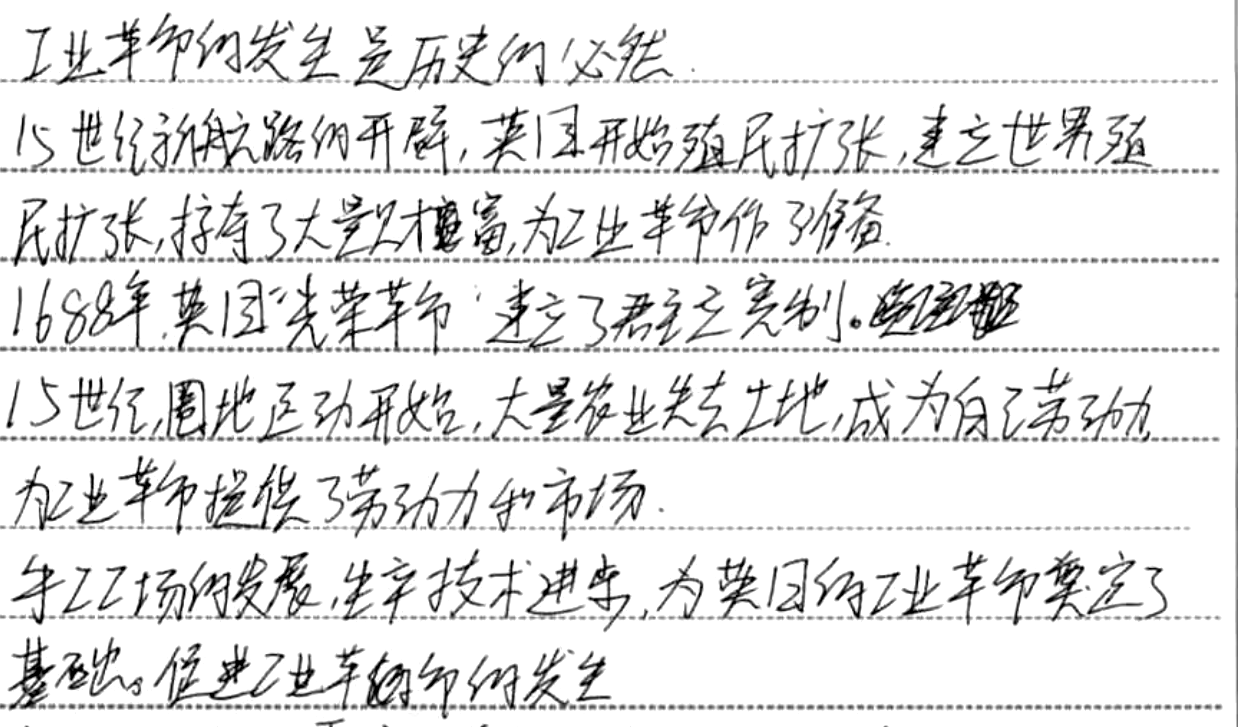 工业革命的发生是历史的必然.
15世纪新航路的开辟,英国开始殖民扩张,建立世界殖
民扩张,掠夺了大量财富,为工业革命作了准备.
1688年,英国"光荣革命"建立了君主立宪制。
15世纪,圈地运动开始,大量农业失去土地,成为自己劳动力,
为工业革命提供了劳动力和市场.
手工工场的发展,生产技术进步,为英国的工业革命奠定了
基础。促进工业革命的发生